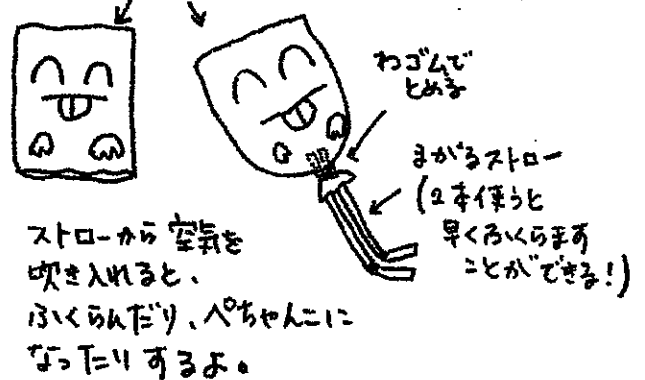 わゴムで
とめる
まがるストロー
(2本使うと
早くふくらます
ことができる!)
ストローから空気を
吹き入れると、
ふくらんだり、ぺちゃんこに
なったりするよ。